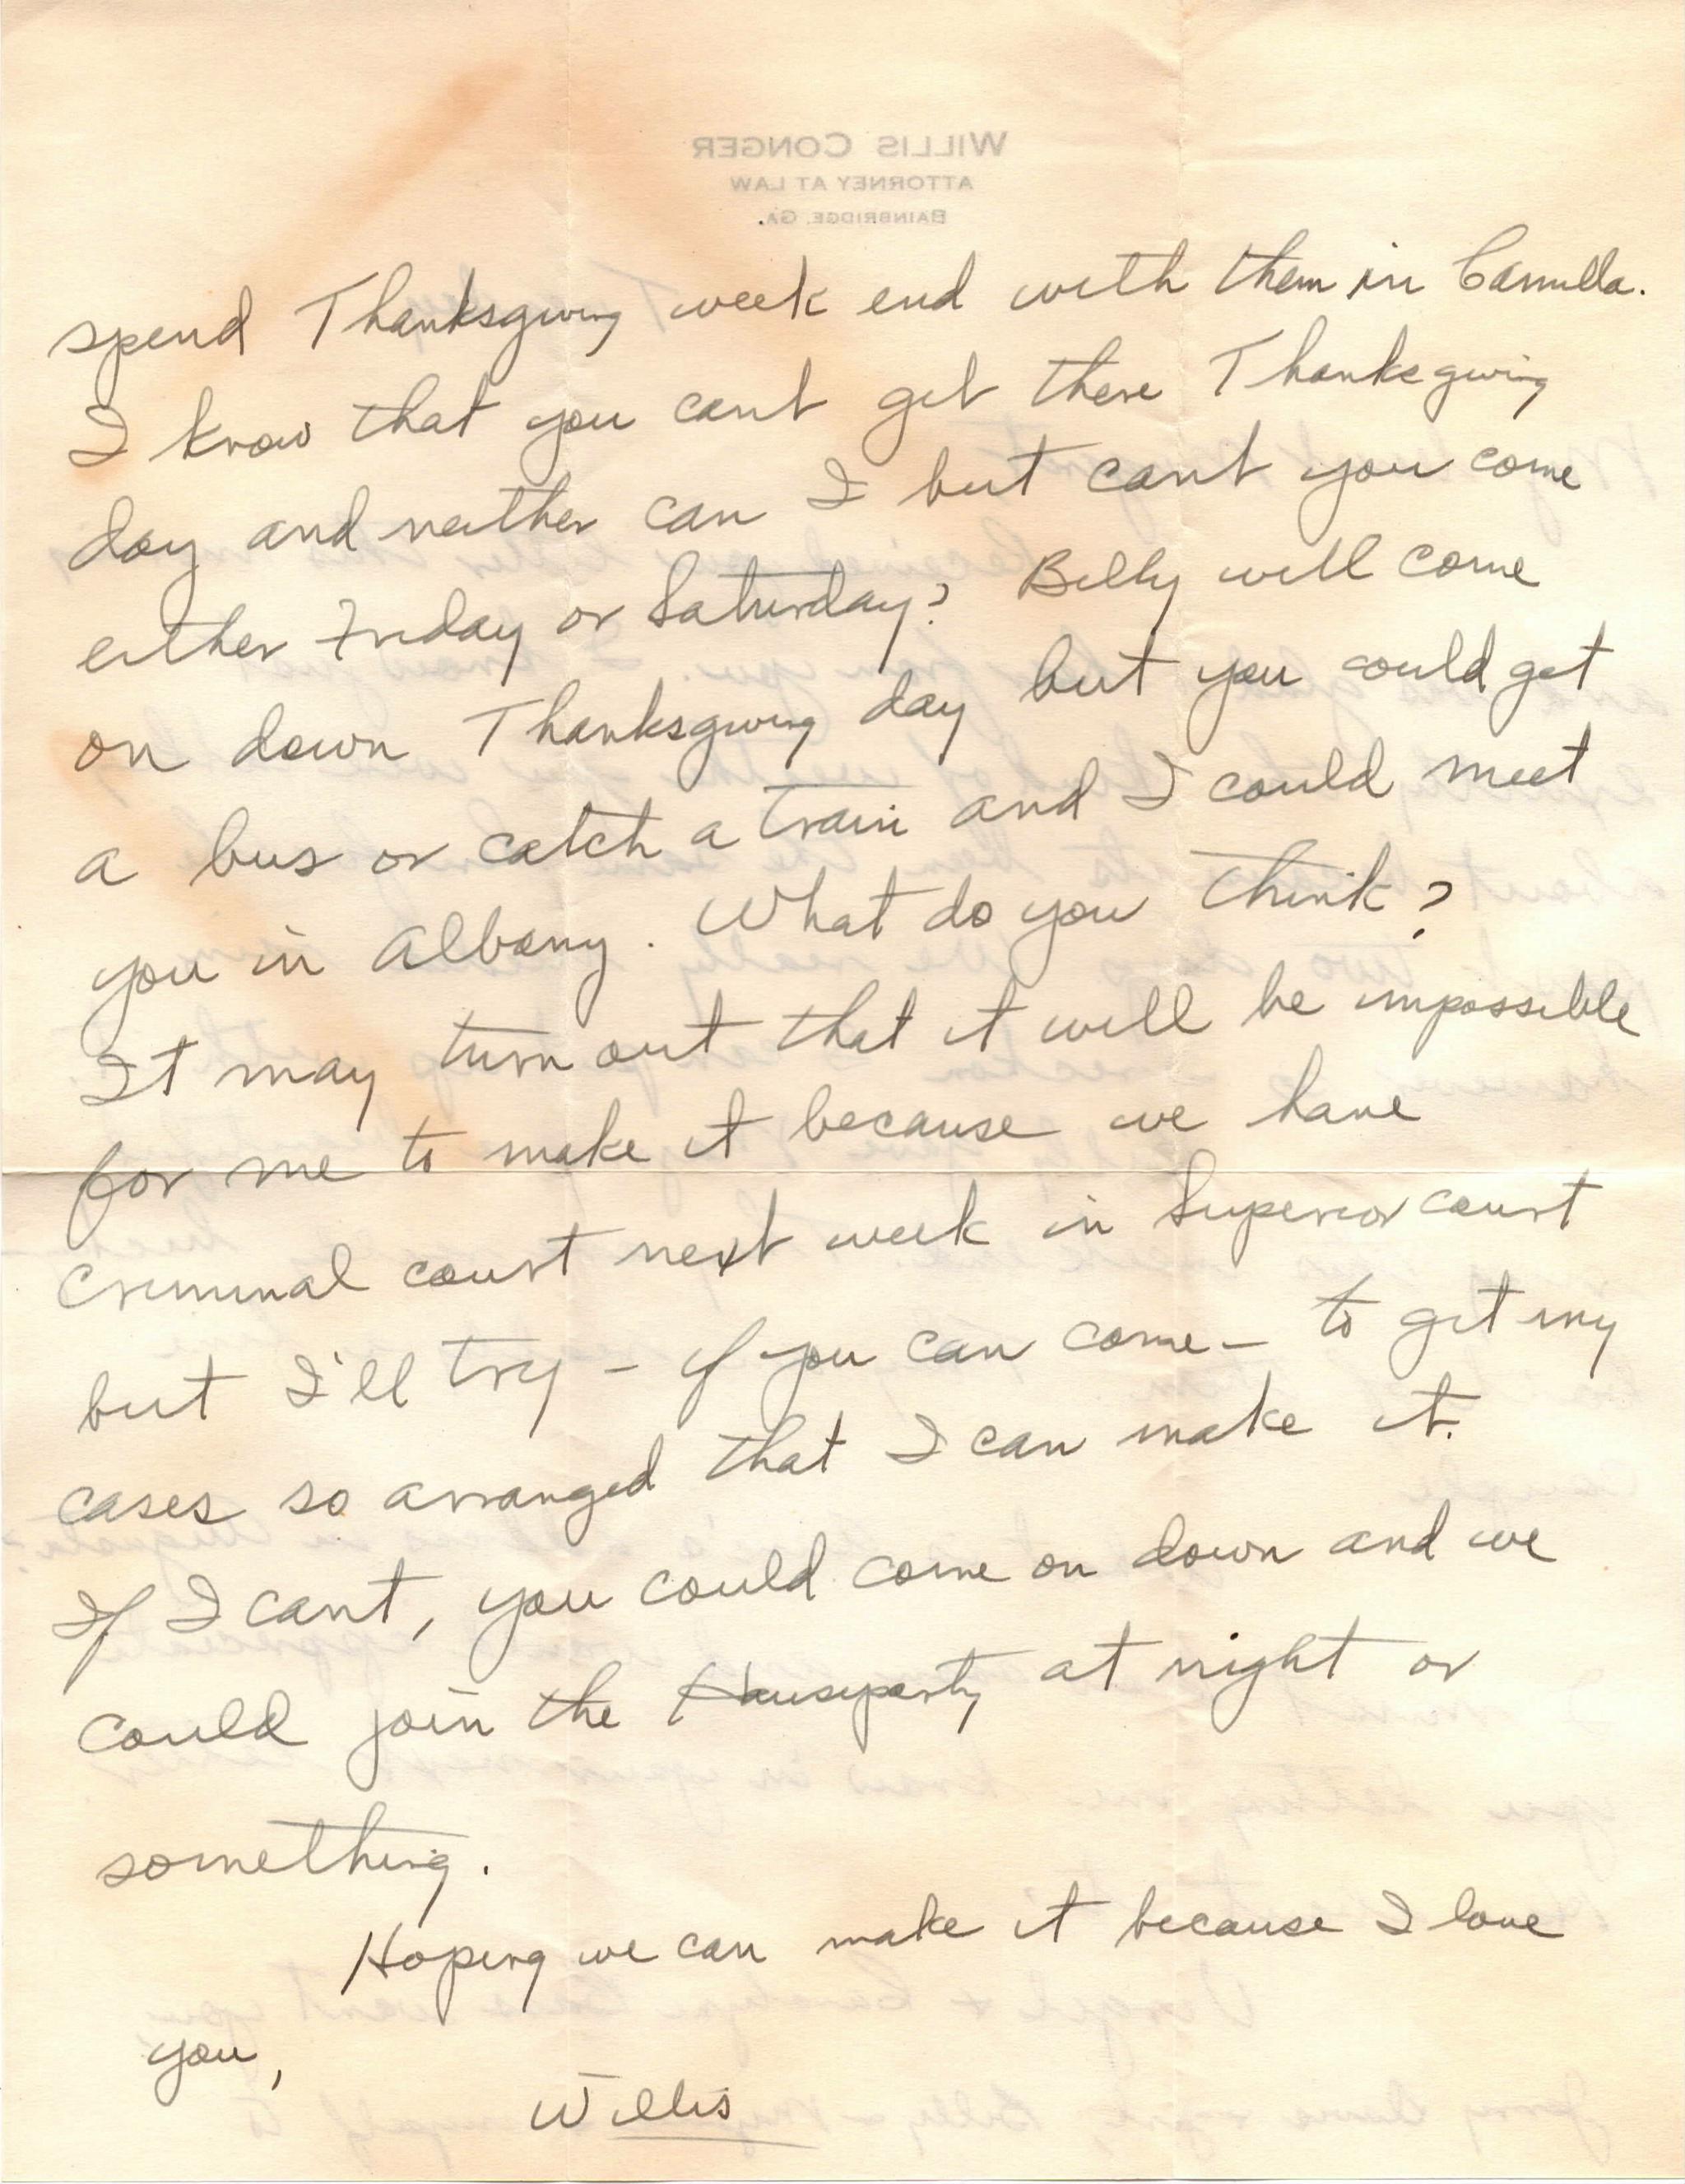 WILLIS CONGER
ATTORNEY AT LAW
BAINBRIDGE, GA.
spend Thanksgiving week end with them in Camilla.
I know that you cant get there Thanksgiving
day and neither can I but cant you come
either Friday or Saturday? Billy will come
on down Thanksgiving day but you could get
a bus or catch a train and I could meet
you in Albany. What do you think?
It may turn out that it will be impossible
for me to make it because we have
criminal court next week in Superior court
but I'll try – if you can come – to get my
cases so arranged that I can make it.
If I cant, you could come on down and we
could join the Houseparty at night or
something.
Hoping we can make it because I love
you,
Willis